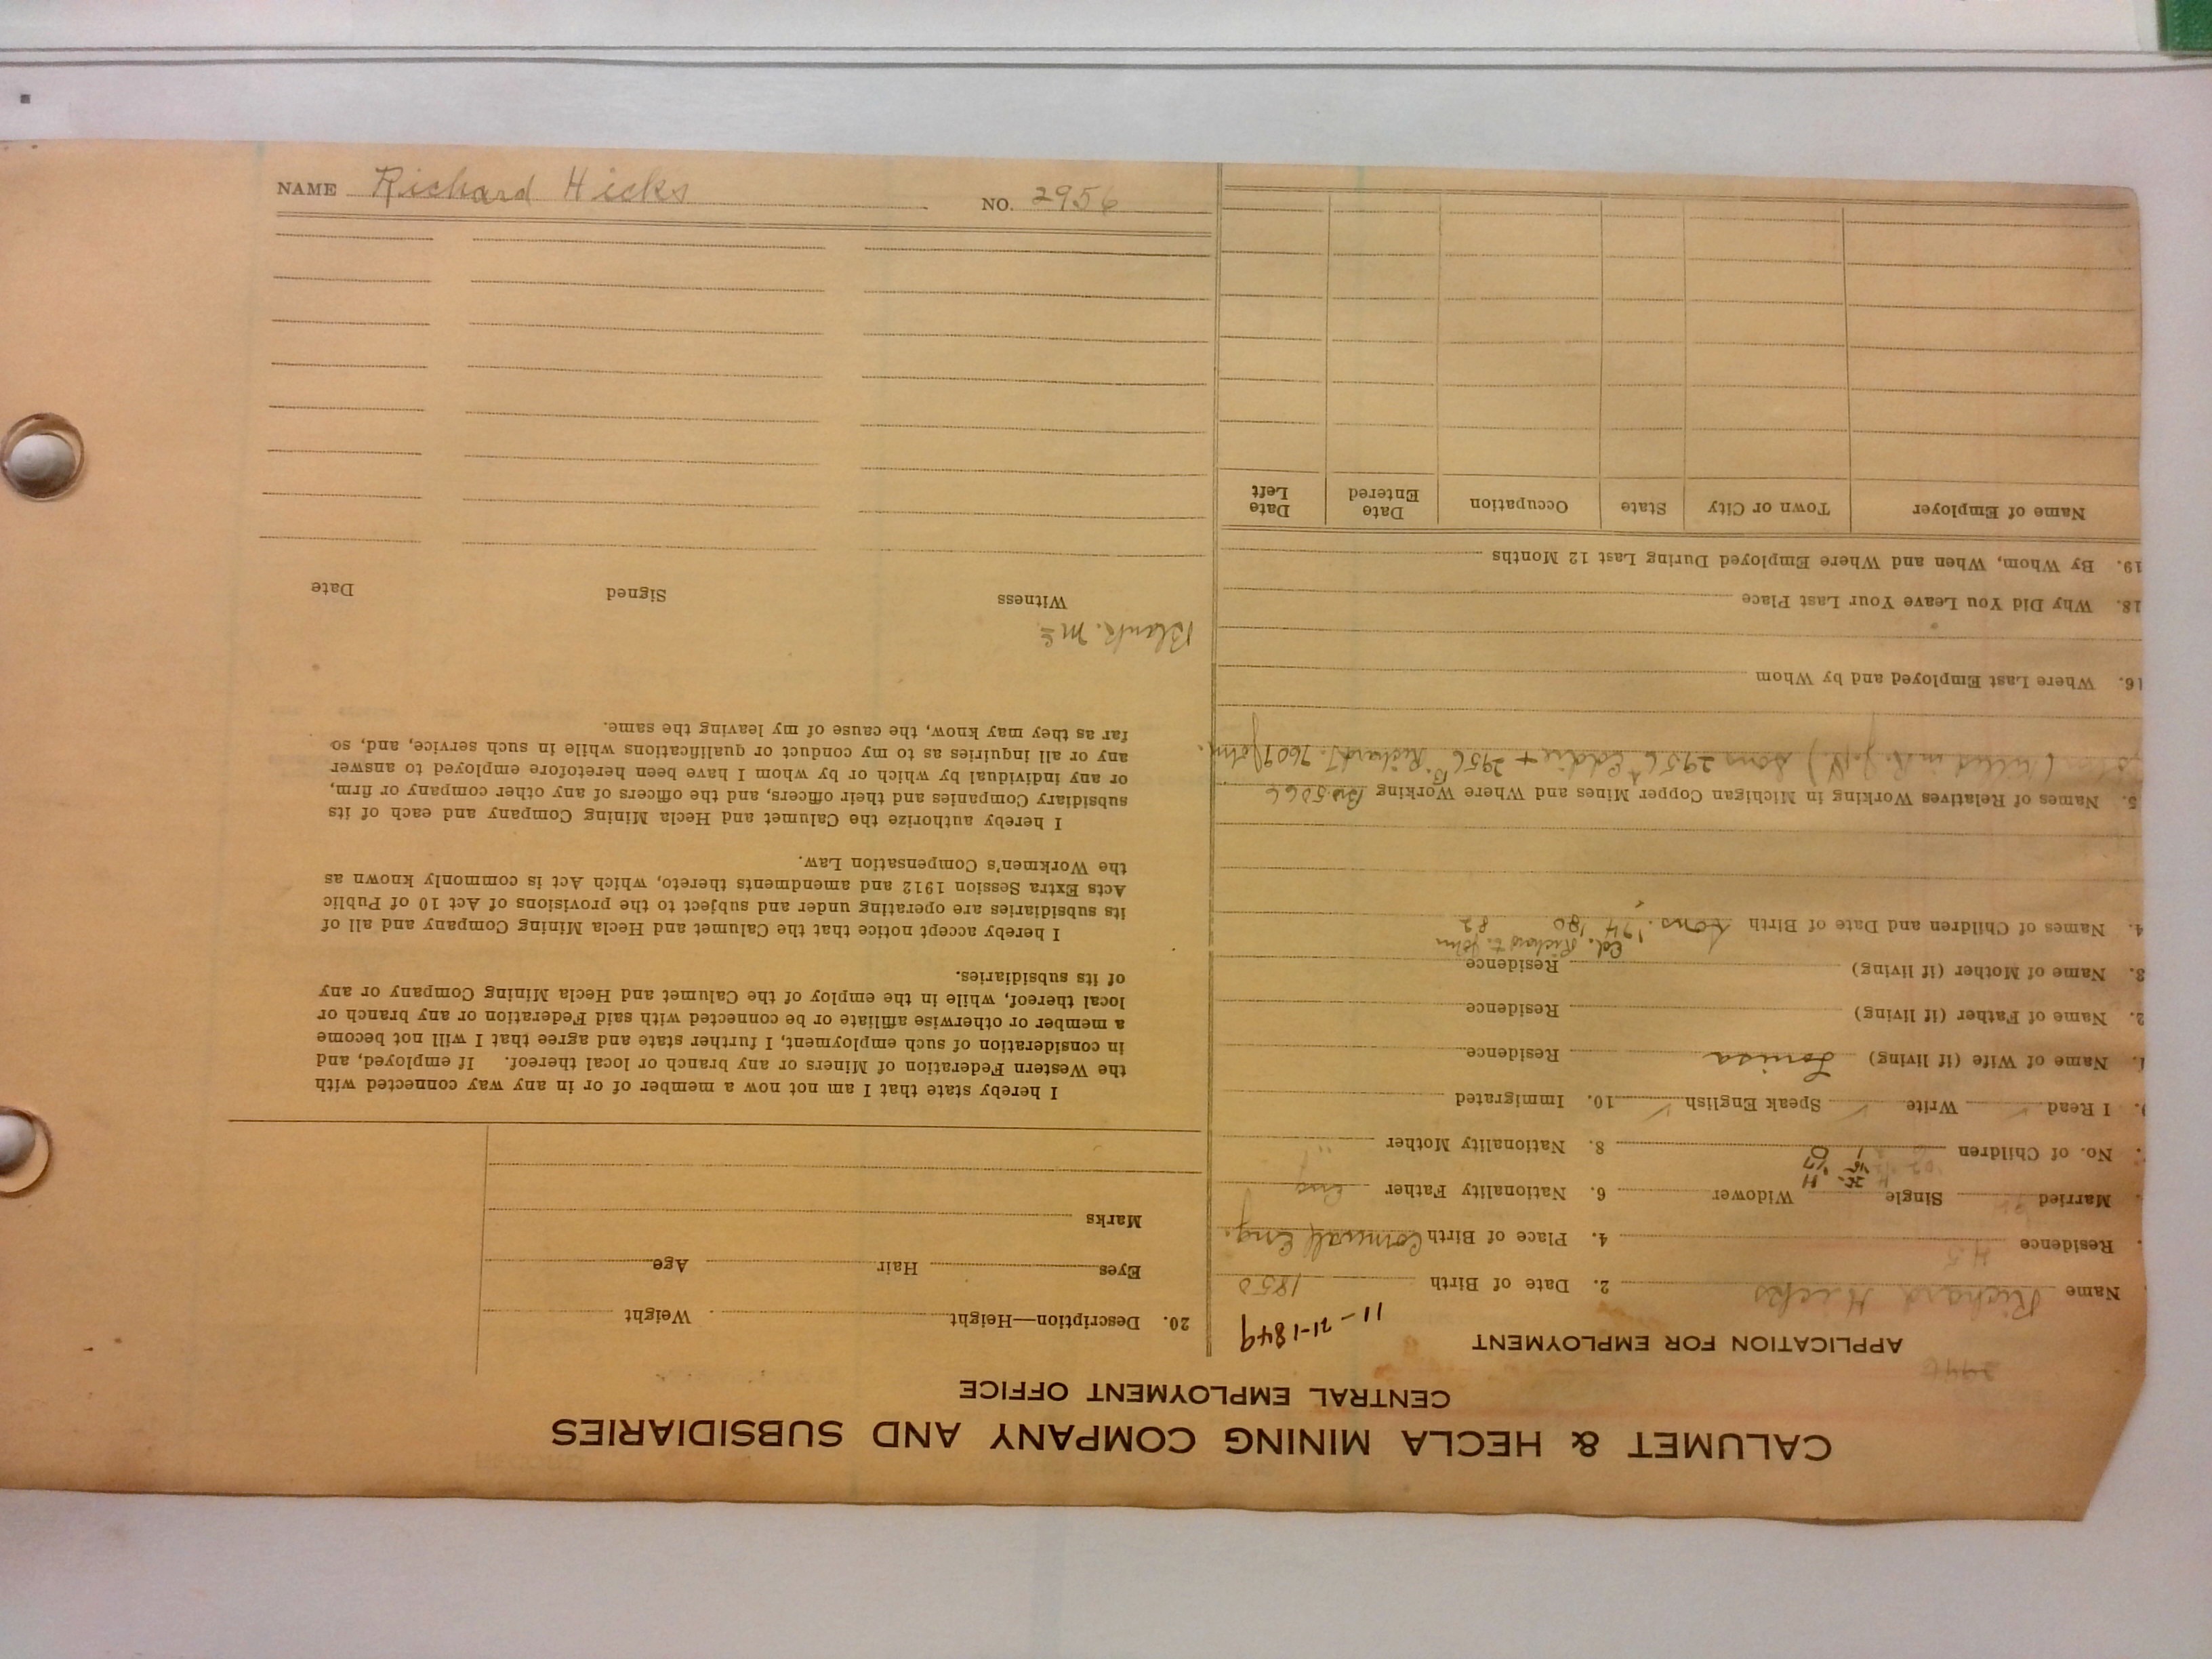 NAME Richard Hicks NO. 2956
CALUMET & HECLA MINING COMPANY AND SUBSIDIARIES
CENTRAL EMPLOYMENT OFFICE
APPLICATION FOR EMPLOYMENT
11-21-1849
Name Richard Hicks 2. Date of Birth 1850
Residence 4. Place of Birth Cornwall Eng.
Married Single Widower 6. Nationality Father Eng
No. of Children 8. Nationality Mother "
I Read ✓ Write ✓ Speak English ✓ 10. Immigrated
Name of Wife (if living) Louisa Residence
2. Name of Father (if living) Residence
3. Name of Mother (if living) Residence
Ed. Richard T. John
4. Names of Children and Date of Birth Sons. '74 '80 82
5. Names of Relatives Working in Michigan Copper Mines and Where Working Bro. 5066
John (killed in ) Sons 2956 A Eddie + 2956 B Richard T. 7609 John.
16. Where Last Employed and by Whom
18. Why Did You Leave Your Last Place
19. By Whom, When and Where Employed During Last 12 Months
Name of Employer Town or City State Occupation Date Entered Date Left
20. Description—Height Weight
Eyes Hair Age
Marks
I hereby state that I am not now a member of or in any way connected with
the Western Federation of Miners or any branch or local thereof. If employed, and
in consideration of such employment, I further state and agree that I will not become
a member or otherwise affiliate or be connected with said Federation or any branch or
local thereof, while in the employ of the Calumet and Hecla Mining Company or any
of its subsidiaries.
I hereby accept notice that the Calumet and Hecla Mining Company and all of
its subsidiaries are operating under and subject to the provisions of Act 10 of Public
Acts Extra Session 1912 and amendments thereto, which Act is commonly known as
the Workmen's Compensation Law.
I hereby authorize the Calumet and Hecla Mining Company and each of its
subsidiary Companies and their officers, and the officers of any other company or firm,
or any individual by which or by whom I have been heretofore employed to answer
any or all inquiries as to my conduct or qualifications while in such service, and, so
far as they may know, the cause of my leaving the same.
Witness Signed Date